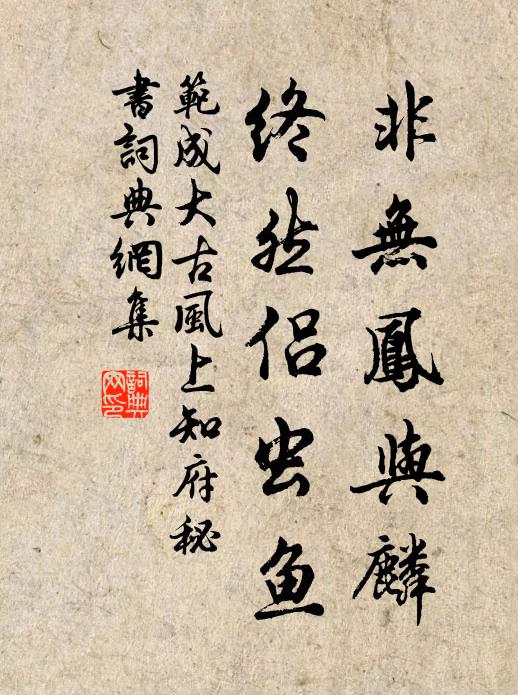 非無鳳與麟
終然侣虫鱼
範成大古風上知府秘
書詞典網集
詞典
网印